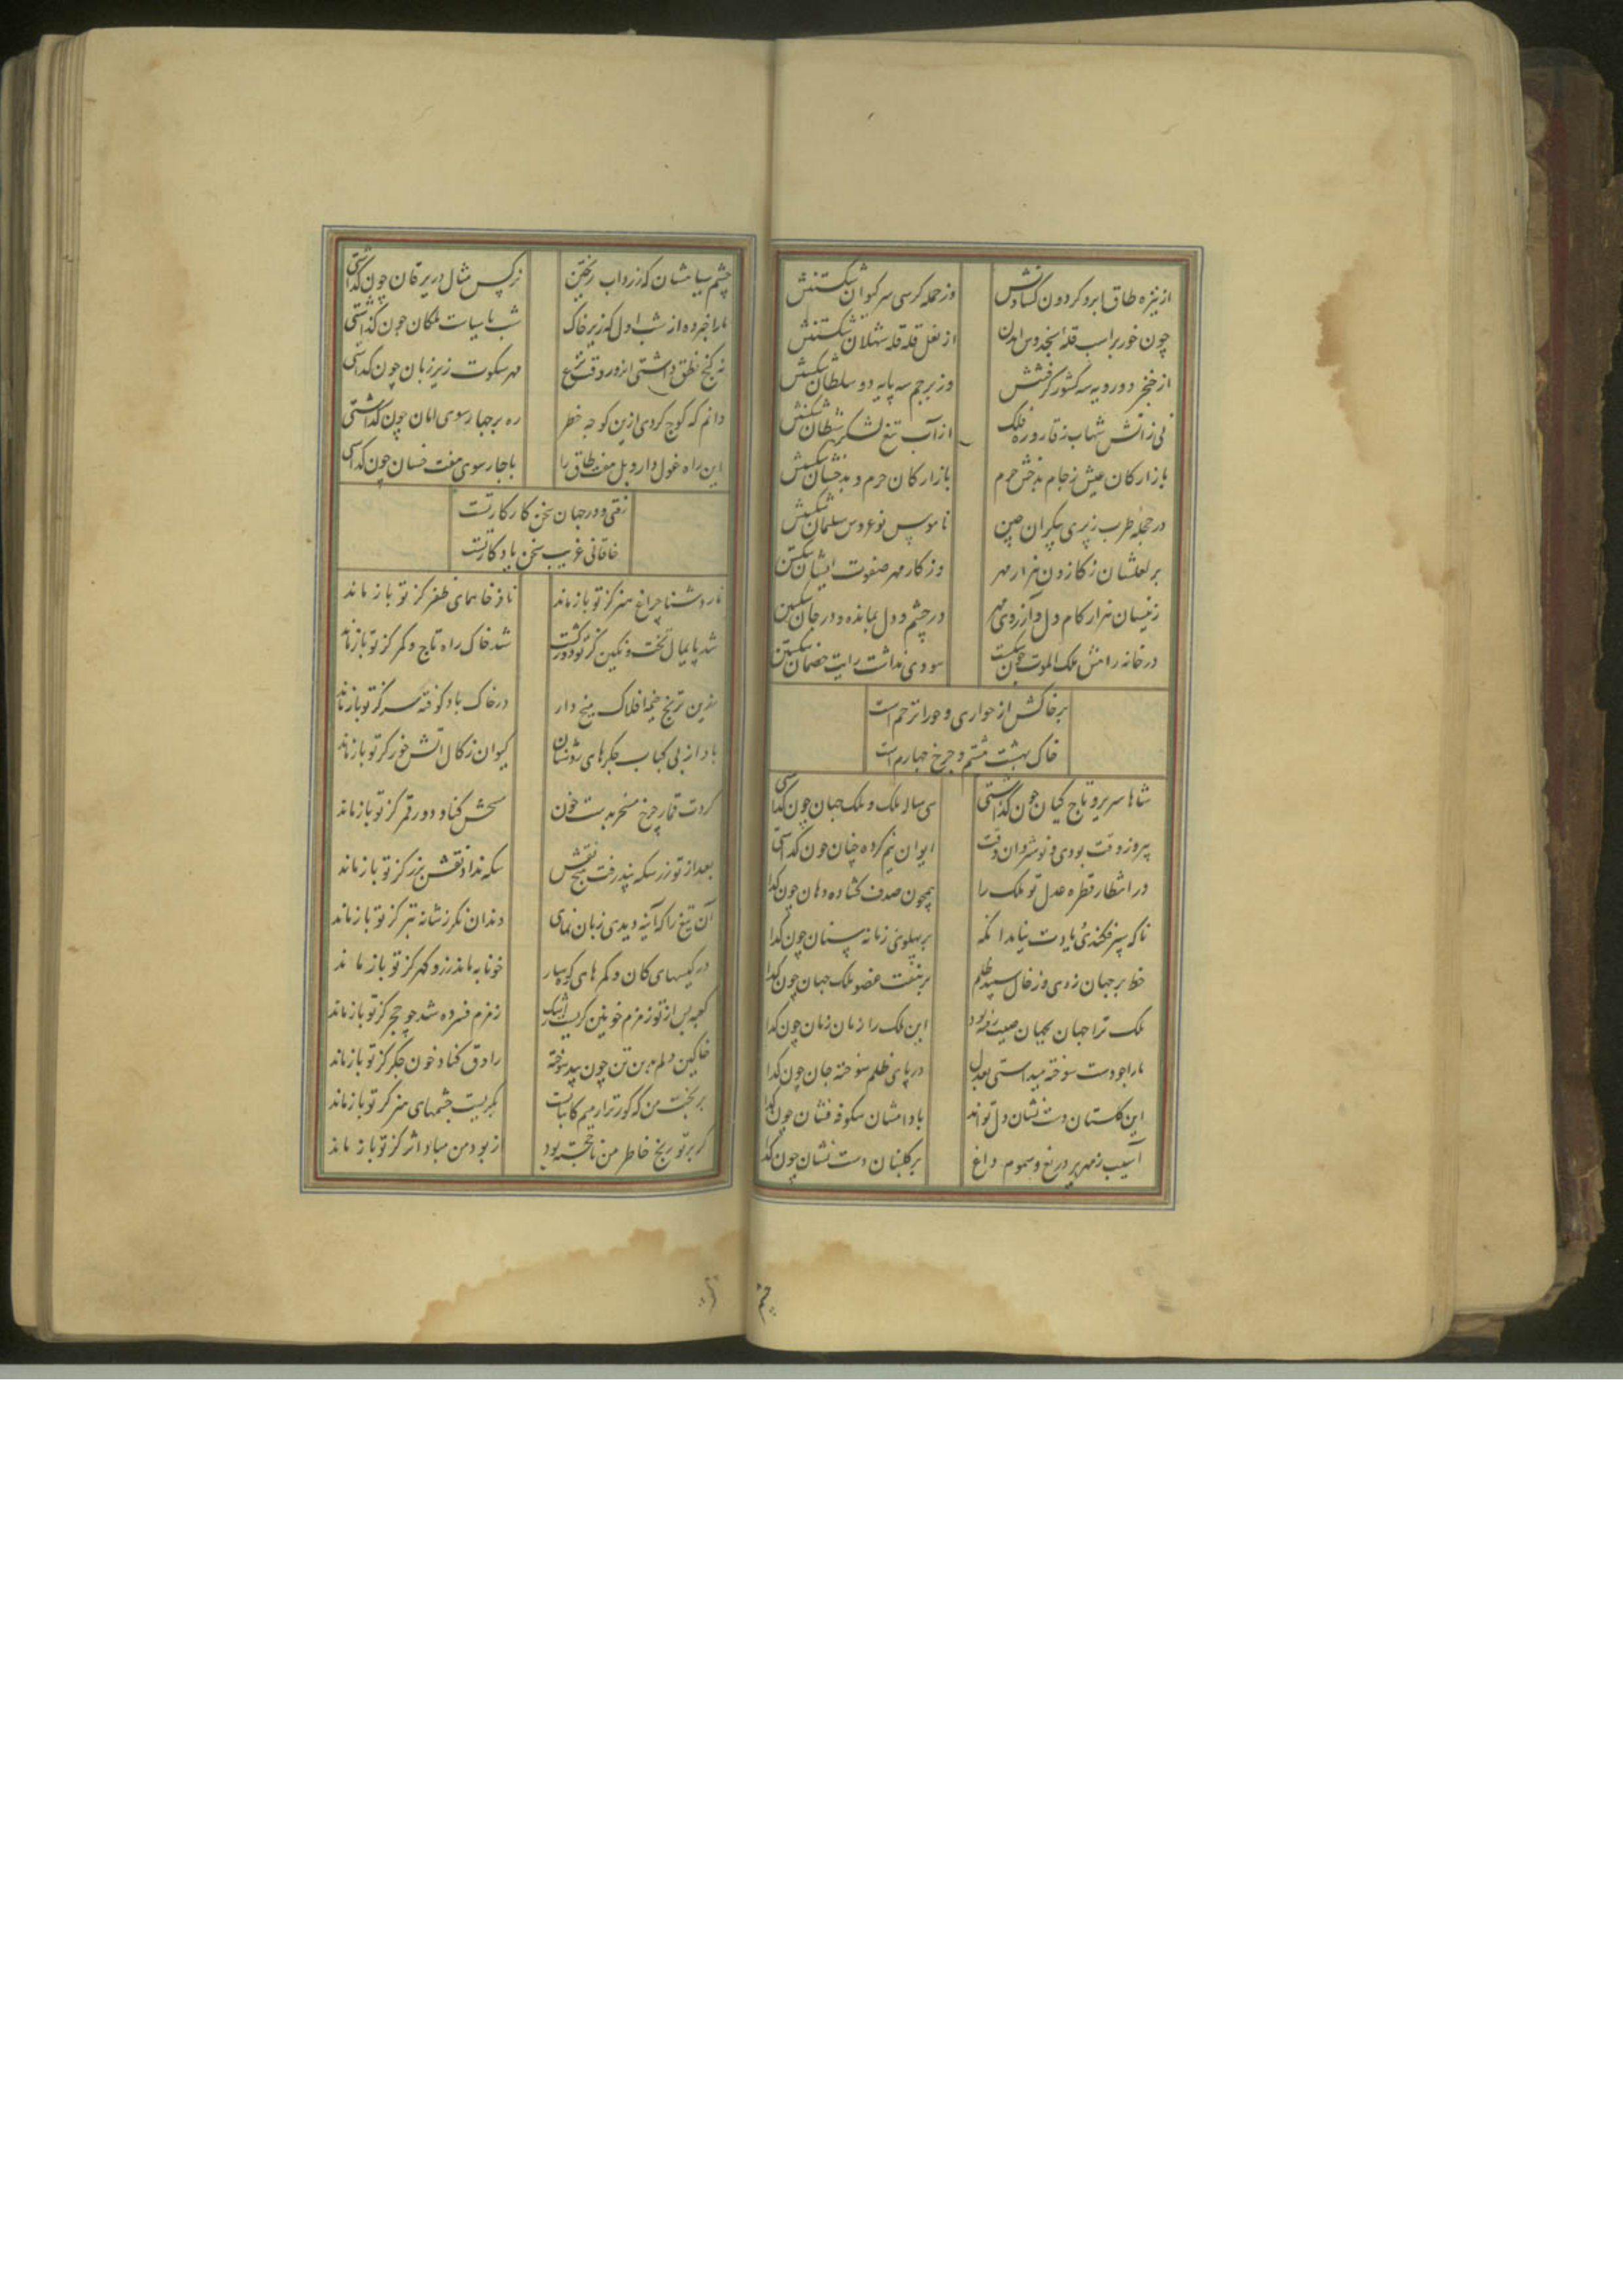 از نیزه طاق ابرو کردون کشادنش
وز حمله کرسی سر کیوان شکستنش
چون خور براسب قله
از نعل قله قله شهلان شکستنش
از خنجر دورویه سه کشور کرفتنش
وز پرچم سه پایه دو سلطان شکستنش
نی زاتش شهاب ز قاروره فلک
از آب تیغ لشکر شیطان شکستنش
بازارکان عیش ز جام بدخش جرم
بازار کان جرم و بدخشان شکستنش
در حجله طرب ز پری پیکران چین
ناموس نوعروس سلیمان شکستنش
بر لعلشان ز کاز دون هزار مهر
وز کار مهر صفوت ایشان شکستن
زینسان هزار کام دل و آرزوی مهر
در چشم و دل بمانده و در جان شکستن
در خانه رامش ملک الموت چون شکست
سودی نداشت رایت خصمان شکستن
بر خاکش از حواری و حورا ترحم است
خاک بهشت هشتم و چرخ چهارم است
شاها سریر و تاج کیان چون کذاشتی
سی ساله ملک و ملک جهان چون کذاشتی
پیروز وقت بودی و نوشروان وقت
ایوان نیم کرده چنان چون کذاشتی
در انتظار قطره عدل تو ملک را
همچون صدف کشاده دهان چون کذا
ناکه سپر فکنده یادت نیامد انکه
بر پهلوی زمانه سنان چون کذا
خط بر جهان زدی و ز خال سپید ظلم
بر هفت عضو ملک جهان چون کذا
ملک ترا جهان بجهان صیت رفته بود
این ملک را زمان زمان چون کذا
مارا چو دست سوخته میداشتی بعدل
در پای ظلم سوخته جان چون کذا
این کلستان دست نشان دل تواند
بادامشان شکوفه فشان چون کذا
آسیب زمهریر دریغ و سموم داغ
بر کلبنان دست نشان چون کذا
چشم
چشم سیاهشان که زرداب ریختن
نرکس مثال در یرقان چون کذاشتی
مارا خبر ده از شب اول که زیر خاک
شب با سیاست ملکان چون کذاشتی
نه کنج نطق داشتی اندور وقت نزع
مهر سکوت زیر زبان چون کذاشتی
دانم که کوچ کردی ازین کوچه خطر
ره بر چهارسوی امان چون کذاشتی
این راه غول دار و پل هفت طاق را
با چارسوی هفت خسان چون کذاشتی
رفتی و در جهان سخن کار کار تست
خاقانی غریب سخن یادکار تست
نار دشنا چراغ هنر کز تو باز ماند
نافز خا همای ظفر کز تو باز ماند
شد پایمال تخت و نکین کز تو دور کشت
شد خاک راه تاج و کمر کز تو باز ماند
زرین ترنج خیمه افلاک میخ دار
در خاک باد کوفته سر کز تو باز ماند
باد از پی کباب جکرهای روشنان
کیوان زکال آتش خور کز تو باز ماند
کردت قمار چرخ مسخر بدست خون
سحرش کناد دور قمر کز تو باز ماند
بعد از تو زر سکه نپذرفت هیچ نقش
سکه نداد نقش بزر کز تو باز ماند
آن تیغ را که آینه دیدی زبان نمای
دندان نکر ز شانه بتر کز تو باز ماند
در کیسهای کان و کمرهای کوهسار
خونابه ماند زر و کهر کز تو باز ماند
کعبه پس از تو زمزم خونین کریست اشک
زمزم فسرده شد چو حجر کز تو باز ماند
خاکین دلم بدین تن چون بید سوخته
راوق کناد خون جکر کز تو باز ماند
بر بخت من که کورترا ز میم کاتبست
بکریست چشمهای هنر کز تو باز ماند
کر بر تو رنج خاطر من ناخجسته بود
از بود من مباد اثر کز تو باز ماند